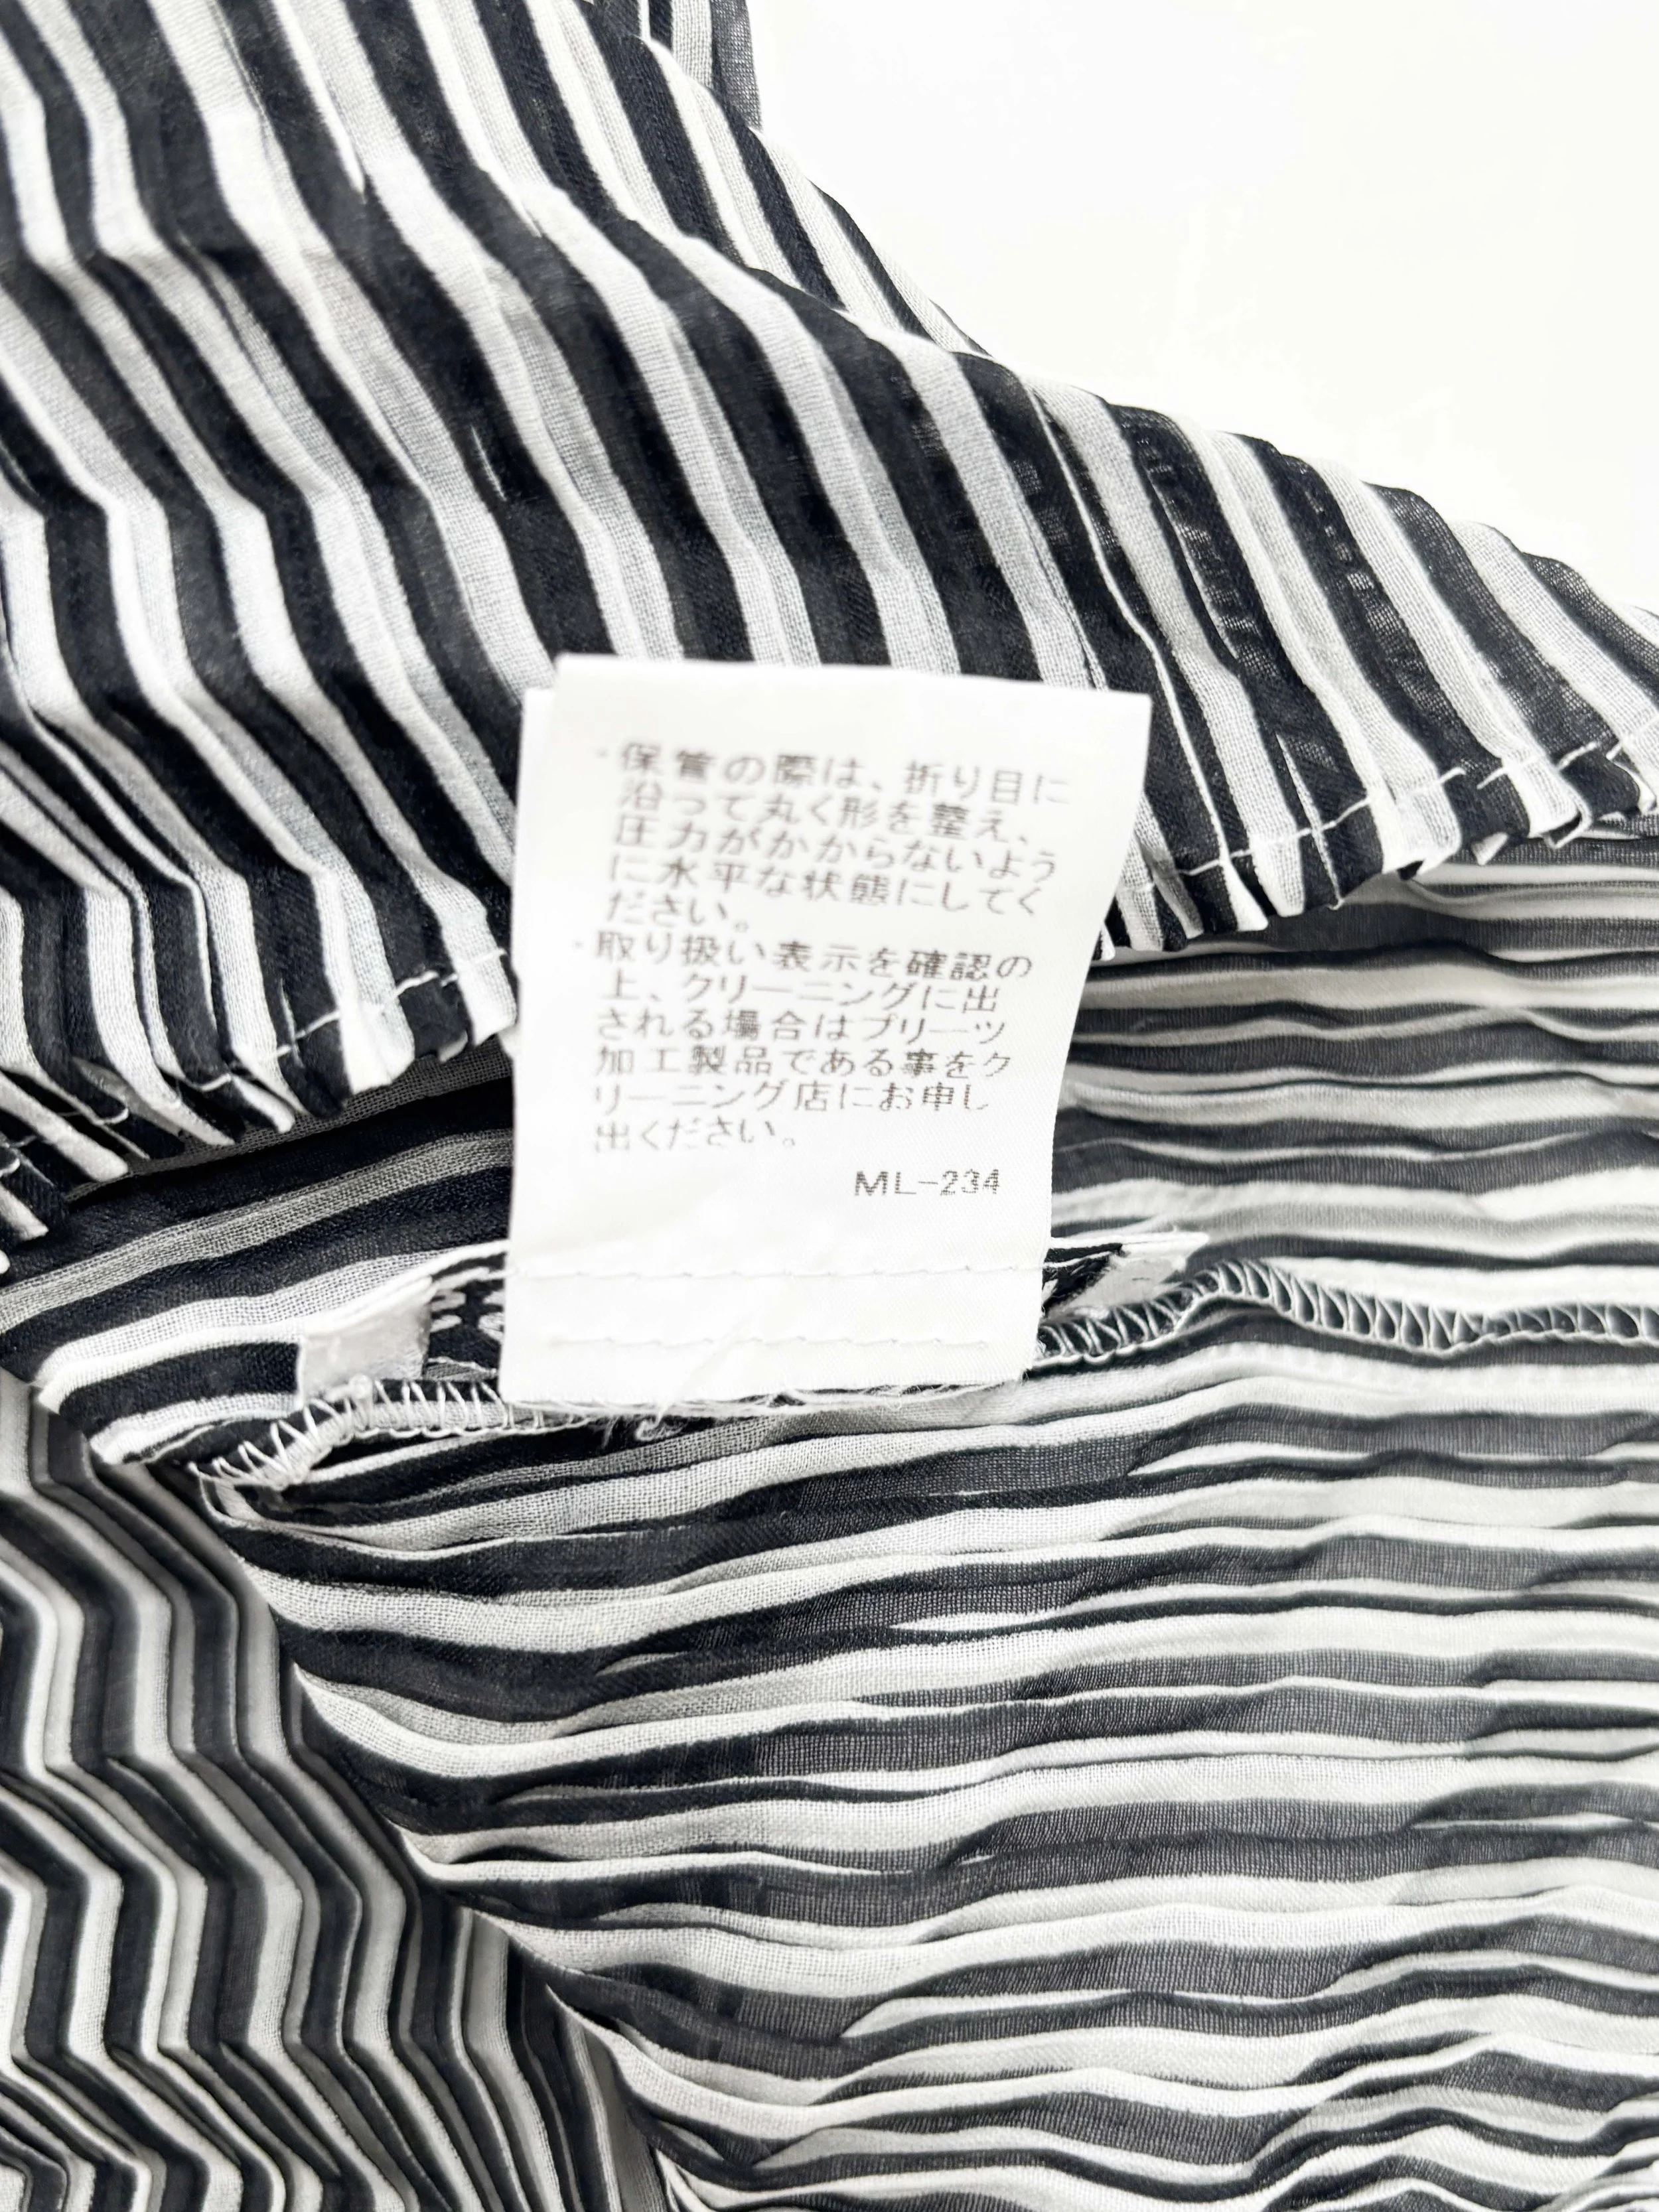 ・保管の際は、折り目に
沿って丸く形を整え、
圧力がかからないよう
に水平な状態にしてく
ださい。
・取り扱い表示を確認の
上、クリーニングに出
される場合はプリーツ
加工製品である事をク
リーニング店にお申し
出ください。
ML-234